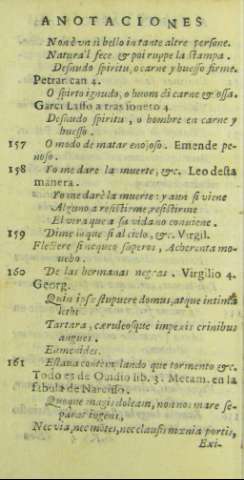 ANOTACIONES
Non è vn si bello in tante altre persone.
Natura'l fece & poi ruppe la stampa.
Desnudo spiritu, o carne y huesso firme.
Petrar. can 4.
O spirto ignudo, o huom di carne & ossa.
Garci Lasso atras soneto 4
Desnudo spiritu, o hombre en carne y
huesso.
157 O modo de matar enojoso. Emende pe-
noso.
158 Yo me dare la muerte, &c. Leo desta
manera.
Yo me darè la muerte: y aun si viene
Alguno a resistirme, resistirme
El vera que a su vida no conuiene.
159 Dime lo que si al cielo, &c. Virgil.
Flectere si nequeo superos, Acheronta mo-
uebo.
160 De las hermanas negras. Virgilio 4.
Georg.
Quin ipsæ stupuere domus, atque intima
lethi
Tartara, cæruleosque impexis crinibus
angues.
Eumenides.
161 Estaua contemplando que tormento &c.
Todo es de Ouidio lib. 3. Metam. en la
fabula de Narcisso.
Quoque magis doleam, non nos mare se-
parat ingens,
Nec via, nec mõtes, nec clausis mœnia portis,
Exi-